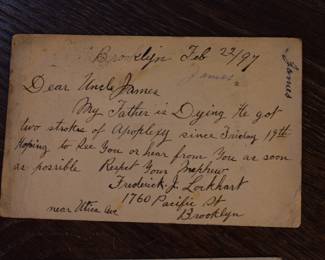 Brooklyn Feb 22/97
James
James
Dear Uncle James
My Father is Dying He got
two strokes of Apoplexy since Friday 19th
Hoping to See You or hear from You as soon
as possible Respct Your Nephew
Frederick J. Lockhart
1760 Pacific St
near Utica Ave Brooklyn